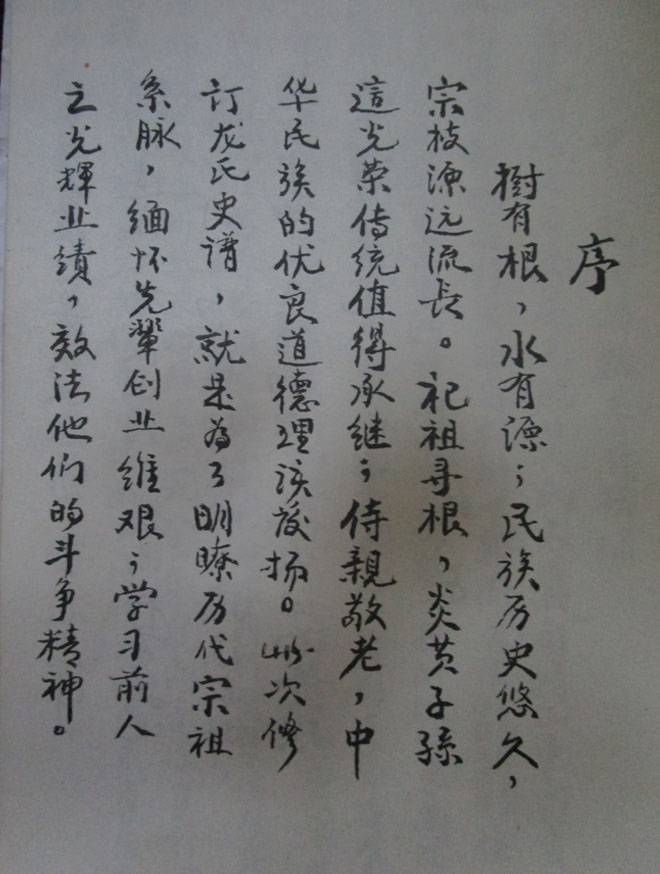 序
樹有根，水有源；民族历史悠久，
宗枝源远流長。祀祖寻根，炎黄子孫
這光荣传统值得承继；侍親敬老，中
华民族的优良道德理该发扬。此次修
订龙氏史谱，就是为了明瞭历代宗祖
系脉，缅怀先輩创业维艰；学习前人
之光輝业绩，效法他们的斗争精神。